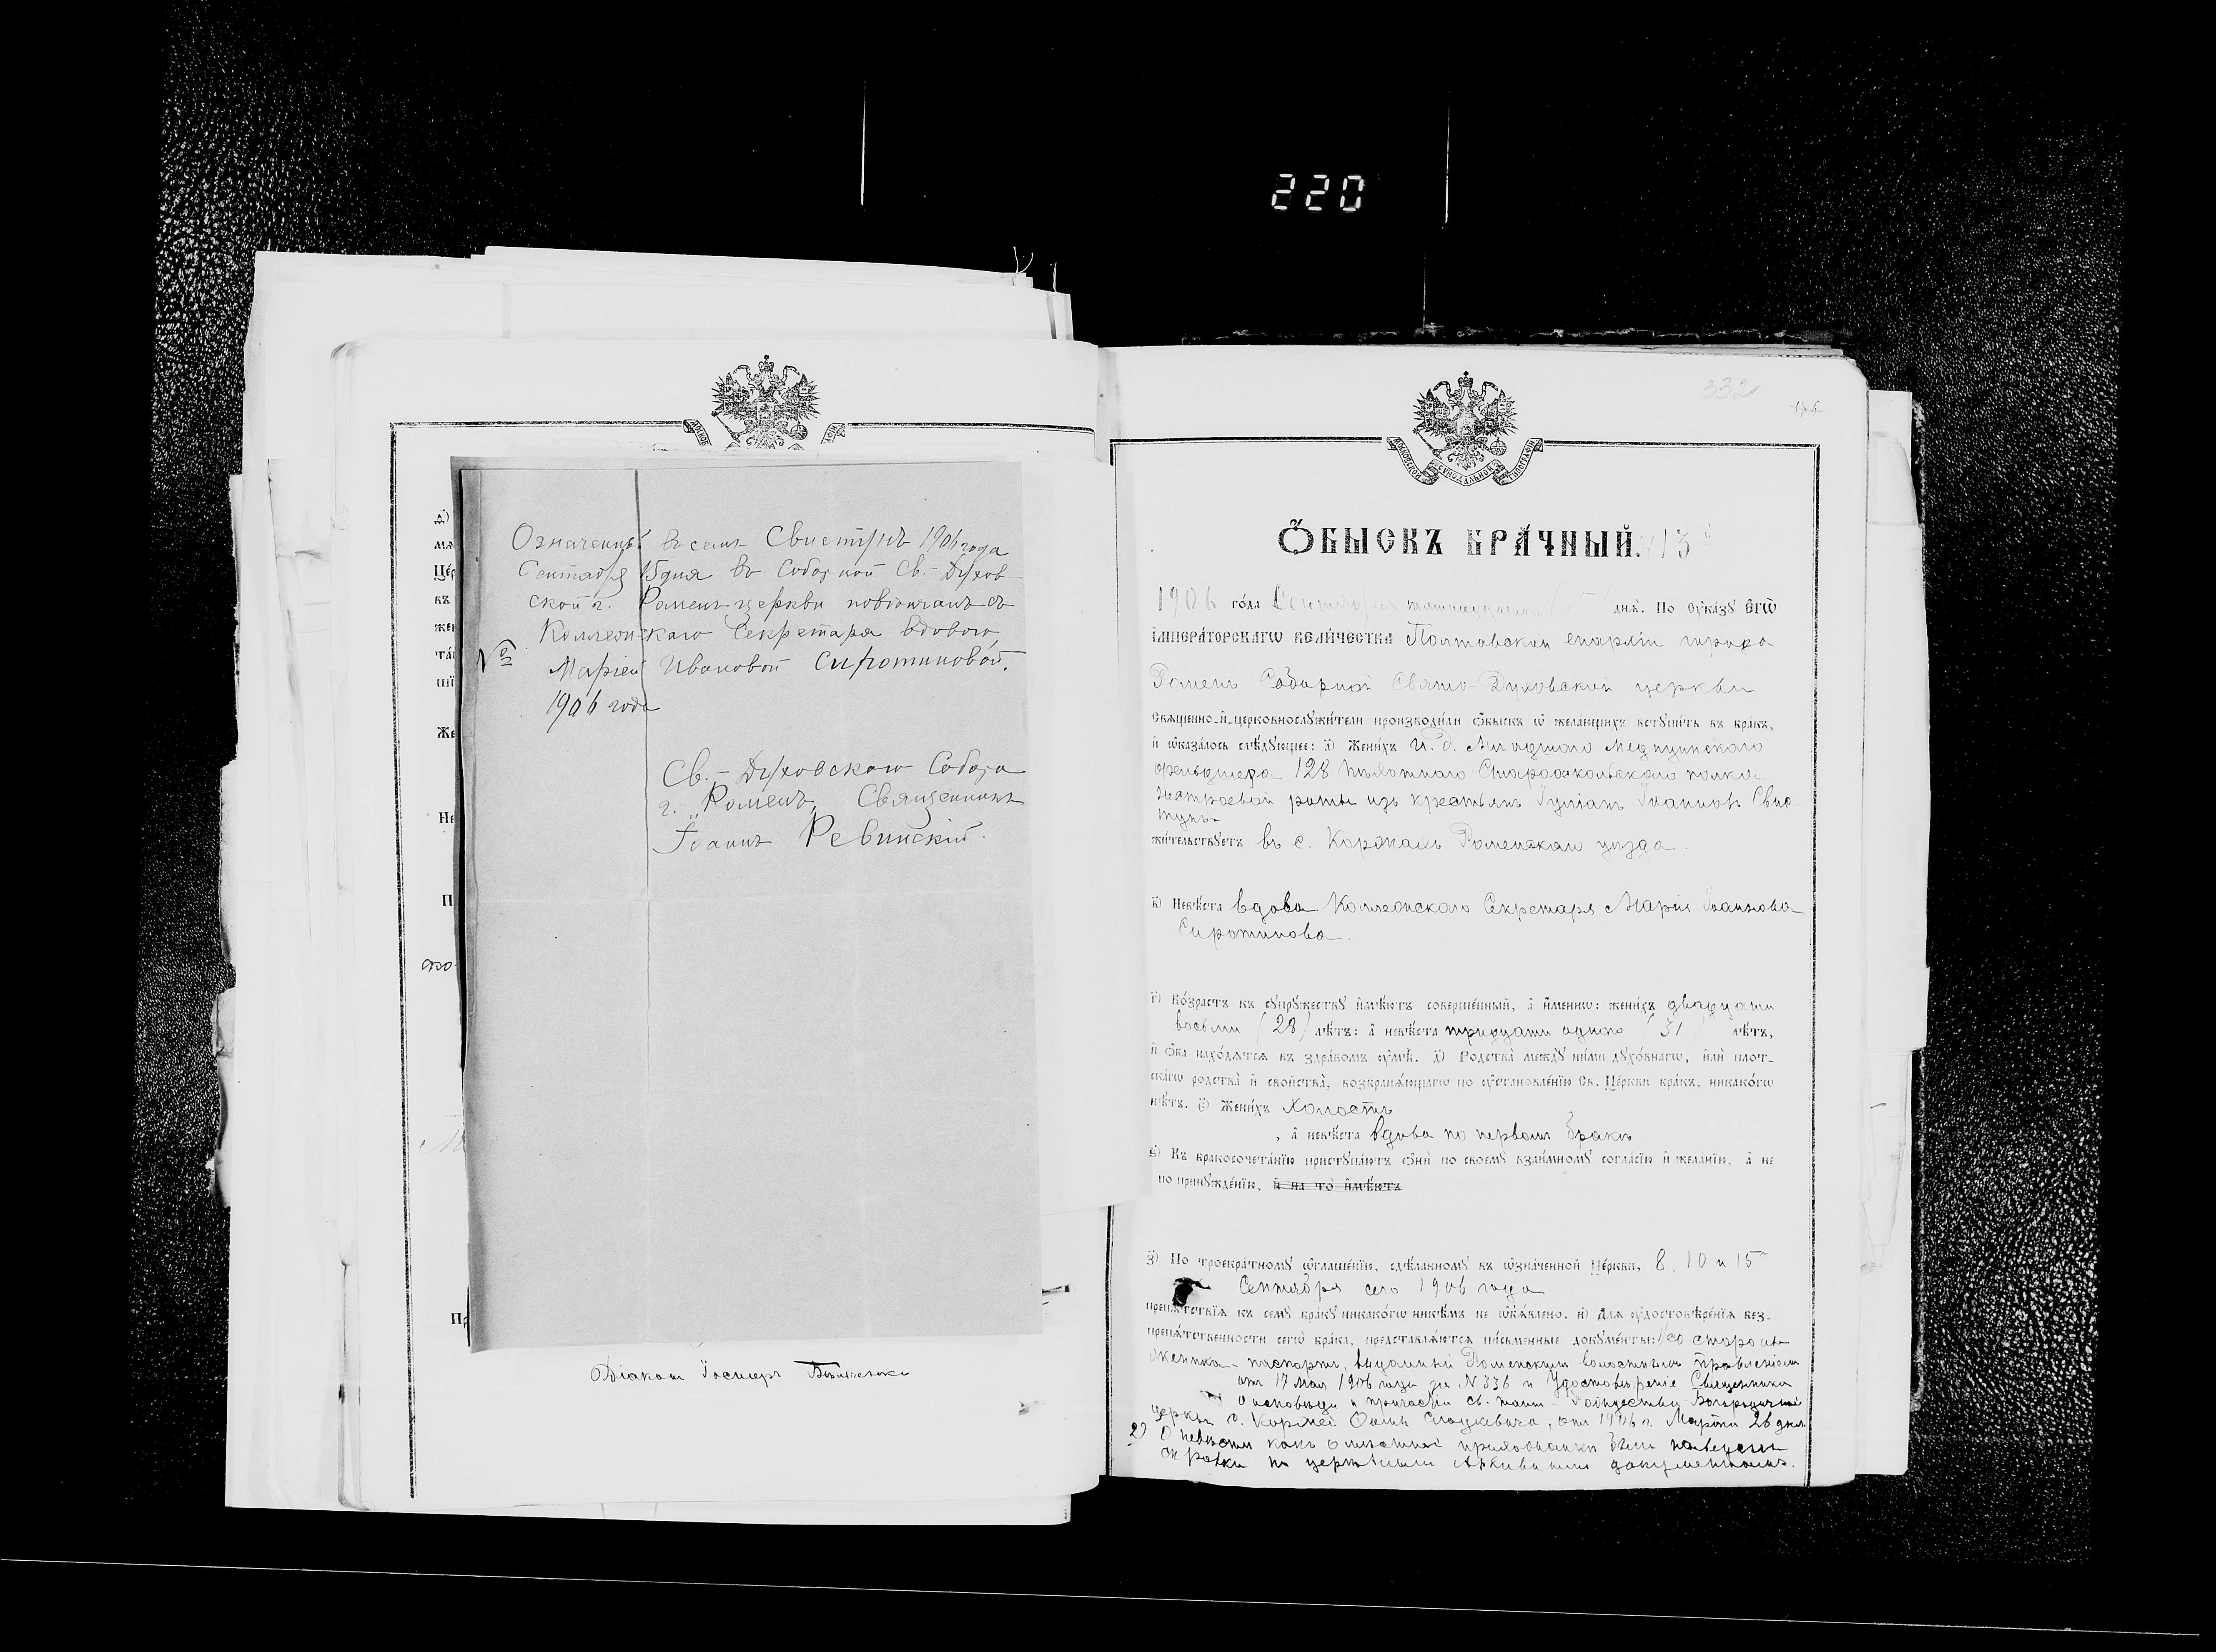 220
Означенный въ семъ Свистунъ 1906 года
Сентября 15 дня въ Соборной Св.-Духов-
ской г. Роменъ церкви повѣнчанъ съ
Коллежскаго Секретаря вдовою
№
Маріей Ивановой Сиротиновой.
1906 года
Св.-Духовскаго Собора
г. Роменъ, Священникъ
Іоаннъ Ревинскій.
Діаконъ
332
ОБЫСКЪ БРАЧНЫЙ. 13
1906 года Сентября дня. По указу ЕГѠ
ІМПЕРАТОРСКАГѠ ВЕЛИЧЕСТВА Полтавской епархіи города
Роменъ Соборной Свято-Духовской церкви
Священно-и-церковнослужители производили обыскъ ѡ желающихъ вступить въ бракъ,
и ѡказалось слѣдующее: а҃) Женихъ И. д. Младшаго Медицинскаго
фельдшера 128 пѣхотнаго Старооскольскаго полка
нестроевой роты изъ крестьянъ Іоанновъ Свис-
тунъ
жительствуетъ въ с. Коржахъ Роменскаго уѣзда.
в҃) Невѣста вдова Коллежскаго Секретаря Марія Іоаннова
Сиротинова.
г҃) Возрастъ къ супружеству имѣютъ совершенный, а именно: женихъ двадцати
восьми (28) лѣтъ: а невѣста тридцати одного (31) лѣтъ,
и оба находятся въ здравомъ умѣ. д҃) Родства между ними духовнагѡ, или плот-
скагѡ родства и свойства, возбраняющагѡ по установленію Св. Церкви бракъ, никакогѡ
нѣтъ. є҃) Женихъ холостъ
, а невѣста вдова по первомъ бракѣ.
ѕ҃) Къ бракосочетанію приступаютъ они по своему взаимному согласію и желанію, а не
по принужденію, и на то имѣютъ
з҃) По троекратному ѡглашенію, сдѣланному въ ѡзначенной Церкви, 8, 10 и 15
Сентября сего 1906 года
препятствія къ сему браку никакогѡ никѣмъ не ѡбъявлено. и҃) Для удостовѣренія без-
препятственности сегѡ брака, представляются письменные документы: 1) со стороны
жениха - паспортъ, выданный Роменскимъ волостнымъ правленіемъ
отъ 17 Мая 1906 года за № 336 и Удостовѣреніе Священника
о исповѣди и причастіи Св. Таинъ - Рождество-Богородичной
церкви с. Коржей отъ 1906 г. Марта 26 дня.
2) О невѣстѣ какъ о мѣстной прихожанкѣ были наведены
справки по церковнымъ Архивнымъ документамъ.